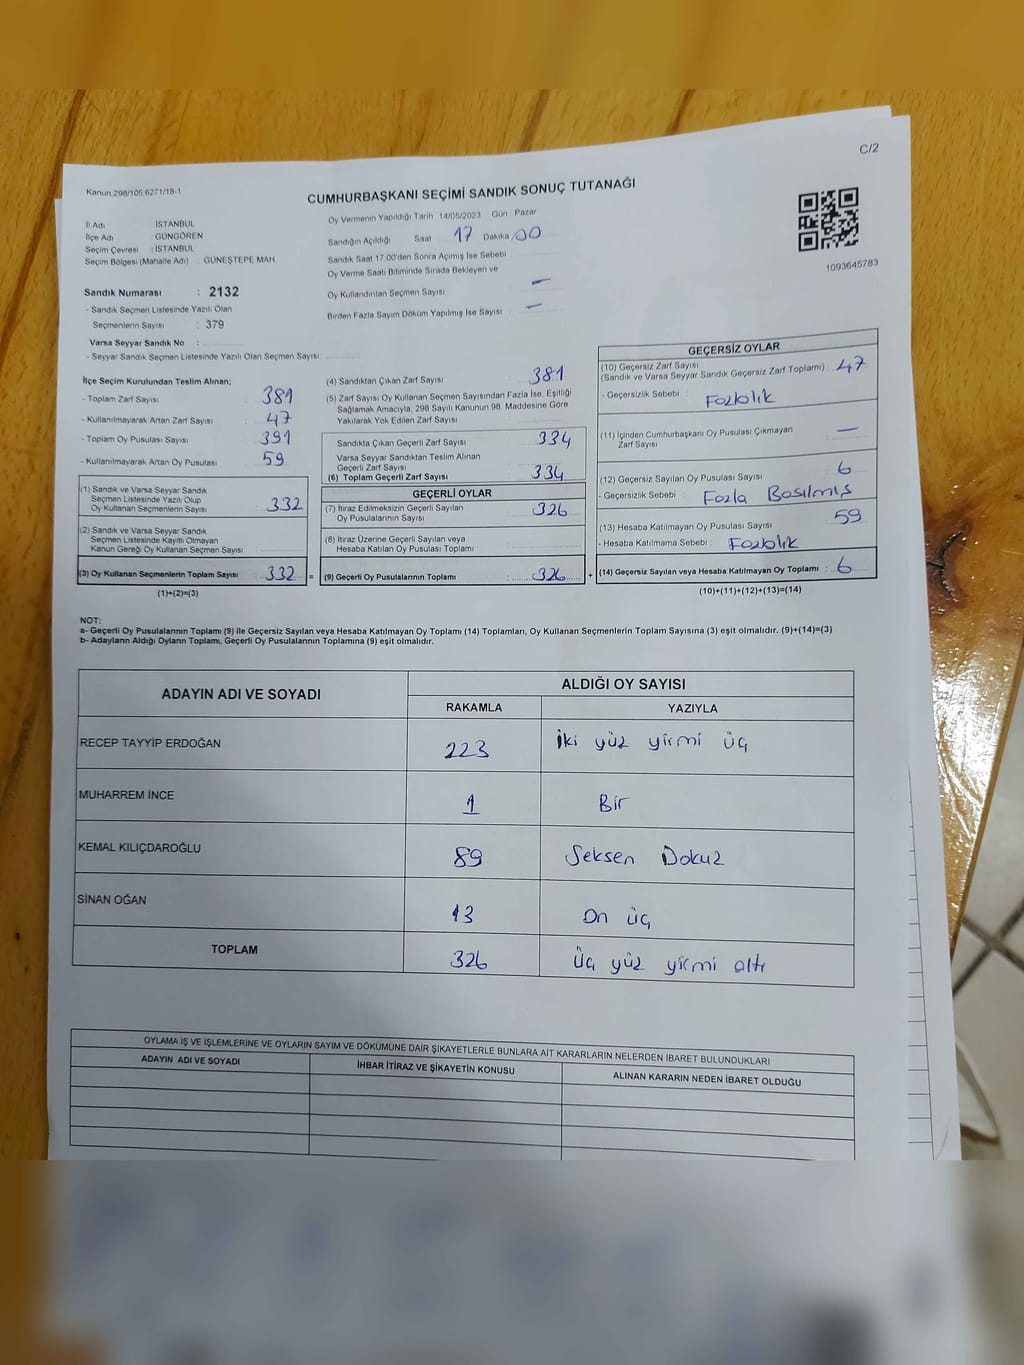 C/2
Kanun:298/105;6271/18-1
CUMHURBAŞKANI SEÇİMİ SANDIK SONUÇ TUTANAĞI
İl Adı İSTANBUL
İlçe Adı GÜNGÖREN
Seçim Çevresi : İSTANBUL
Seçim Bölgesi (Mahalle Adı) : GÜNEŞTEPE MAH
Sandık Numarası : 2132
- Sandık Seçmen Listesinde Yazılı Olan
Seçmenlerin Sayısı : 379
Varsa Seyyar Sandık No :
- Seyyar Sandık Seçmen Listesinde Yazılı Olan Seçmen Sayısı :
Oy Vermenin Yapıldığı Tarih 14/05/2023 Gün : Pazar
Sandığın Açıldığı Saat 17 Dakika 00
Sandık Saat 17.00'den Sonra Açımış İse Sebebi
Oy Verme Saati Bitiminde Sırada Bekleyen ve
Oy Kullandırılan Seçmen Sayısı : —
Birden Fazla Sayım Döküm Yapılmış İse Sayısı : —
1093645783
İlçe Seçim Kurulundan Teslim Alınan;
- Toplam Zarf Sayısı : 381
- Kullanılmayarak Artan Zarf Sayısı : 47
- Toplam Oy Pusulası Sayısı : 391
- Kullanılmayarak Artan Oy Pusulası : 59
(1) Sandık ve Varsa Seyyar Sandık
Seçmen Listesinde Yazılı Olup
Oy Kullanan Seçmenlerin Sayısı : 332
(2) Sandık ve Varsa Seyyar Sandık
Seçmen Listesinde Kayıtlı Olmayan
Kanun Gereği Oy Kullanan Seçmen Sayısı :
(3) Oy Kullanan Seçmenlerin Toplam Sayısı : 332 =
(1)+(2)=(3)
(4) Sandıktan Çıkan Zarf Sayısı : 381
(5) Zarf Sayısı Oy Kullanan Seçmen Sayısından Fazla İse, Eşitliği
Sağlamak Amacıyla, 298 Sayılı Kanunun 98. Maddesine Göre
Yakılarak Yok Edilen Zarf Sayısı :
Sandıkta Çıkan Geçerli Zarf Sayısı : 334
Varsa Seyyar Sandıktan Teslim Alınan
Geçerli Zarf Sayısı :
(6) Toplam Geçerli Zarf Sayısı : 334
GEÇERLİ OYLAR
(7) İtiraz Edilmeksizin Geçerli Sayılan
Oy Pusulalarının Sayısı : 326
(8) İtiraz Üzerine Geçerli Sayılan veya
Hesaba Katılan Oy Pusulası Toplamı :
(9) Geçerli Oy Pusulalarının Toplamı : 326 +
GEÇERSİZ OYLAR
(10) Geçersiz Zarf Sayısı
(Sandık ve Varsa Seyyar Sandık Geçersiz Zarf Toplamı) : 47
- Geçersizlik Sebebi : Fazlalık
(11) İçinden Cumhurbaşkanı Oy Pusulası Çıkmayan
Zarf Sayısı : —
(12) Geçersiz Sayılan Oy Pusulası Sayısı : 6
- Geçersizlik Sebebi : Fazla Basılmış
(13) Hesaba Katılmayan Oy Pusulası Sayısı : 59
- Hesaba Katılmama Sebebi : Fazlalık
(14) Geçersiz Sayılan veya Hesaba Katılmayan Oy Toplamı : 6
(10)+(11)+(12)+(13)=(14)
NOT:
a- Geçerli Oy Pusulalarının Toplamı (9) ile Geçersiz Sayılan veya Hesaba Katılmayan Oy Toplamı (14) Toplamları, Oy Kullanan Seçmenlerin Toplam Sayısına (3) eşit olmalıdır. (9)+(14)=(3)
b- Adayların Aldığı Oyların Toplamı, Geçerli Oy Pusulalarının Toplamına (9) eşit olmalıdır.
ADAYIN ADI VE SOYADI
ALDIĞI OY SAYISI
RAKAMLA YAZIYLA
RECEP TAYYİP ERDOĞAN 223 İki yüz yirmi üç
MUHARREM İNCE 1 Bir
KEMAL KILIÇDAROĞLU 89 Seksen Dokuz
SİNAN OĞAN 13 On üç
TOPLAM 326 Üç yüz yirmi altı
OYLAMA İŞ VE İŞLEMLERİNE VE OYLARIN SAYIM VE DÖKÜMÜNE DAİR ŞİKAYETLERLE BUNLARA AİT KARARLARIN NELERDEN İBARET BULUNDUKLARI
ADAYIN ADI VE SOYADI İHBAR İTİRAZ VE ŞİKAYETİN KONUSU ALINAN KARARIN NEDEN İBARET OLDUĞU